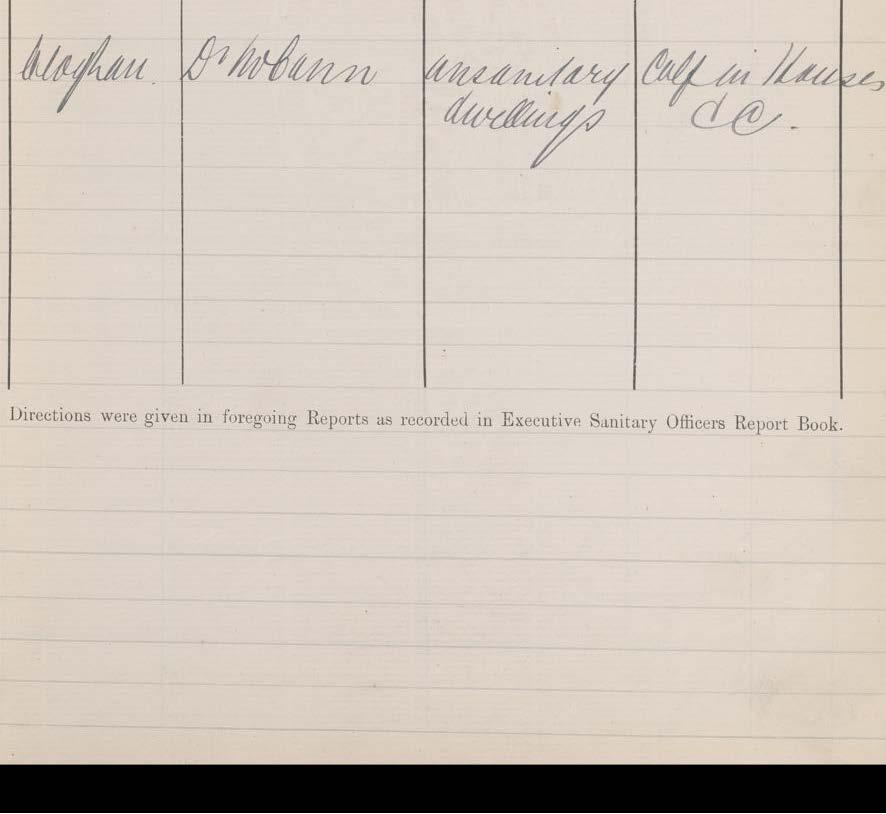 Cloghan. Dr McCann unsanitary Calf in Houses
dwellings &c.
Directions were given in foregoing Reports as recorded in Executive Sanitary Officers Report Book.